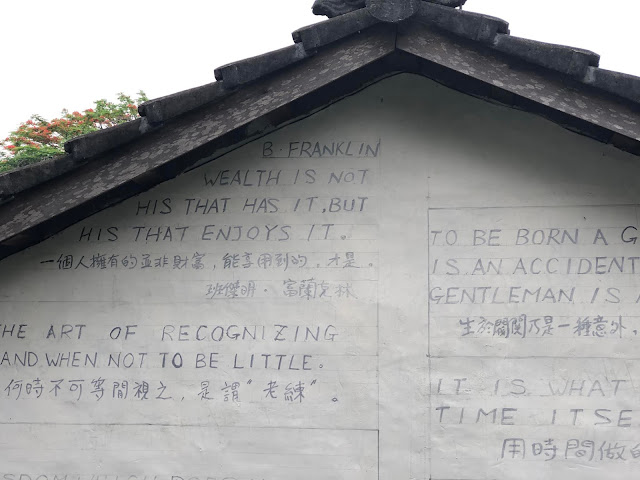 B. FRANKLIN
WEALTH IS NOT
HIS THAT HAS IT, BUT
HIS THAT ENJOYS IT.
一個人擁有的並非財富，能享用到的，才是。
班傑明．富蘭克林
THE ART OF RECOGNIZING
AND WHEN NOT TO BE LITTLE.
何時不可等閒視之，是謂“老練”。
TO BE BORN A G
IS AN ACCIDENT
GENTLEMAN IS
生於閥閱乃是一種意外，
IT IS WHAT
TIME ITSE
用時間做的
WHICH DOES